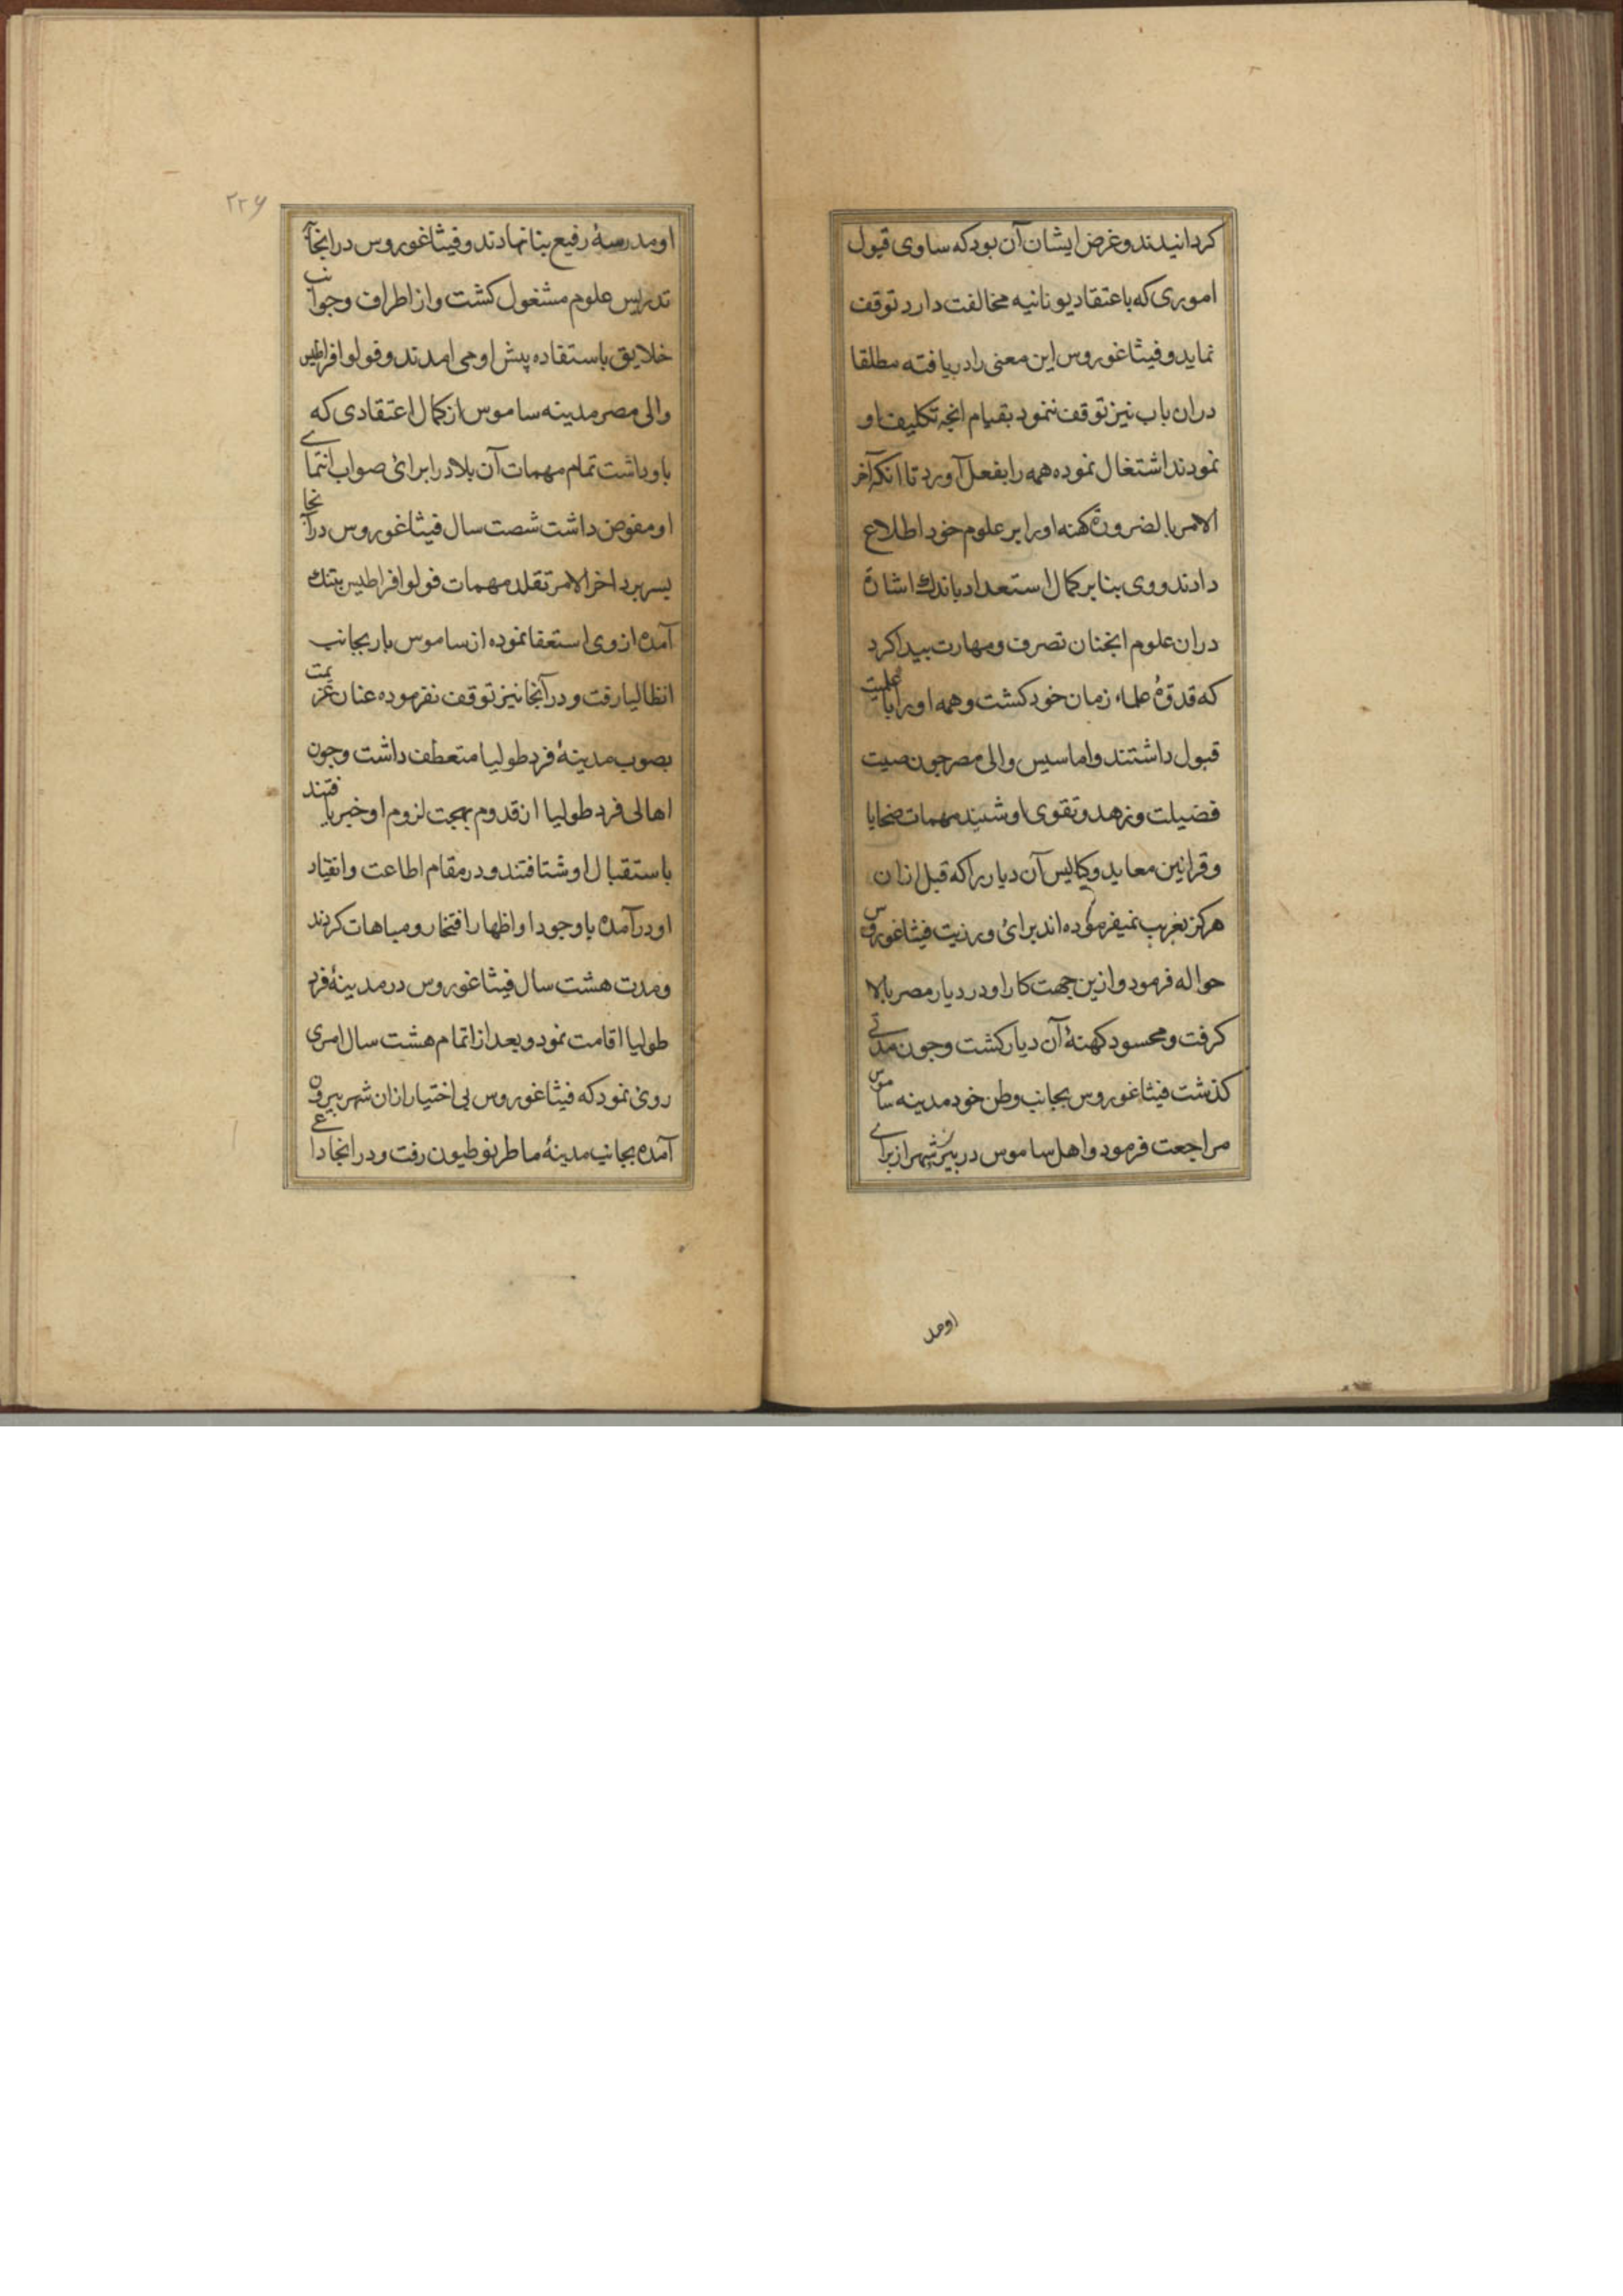 کردانیدند و غرض ایشان آن بود که ساوی قبول
اموری که باعتقاد یونانیه مخالفت دارد توقف
نماید و فیثاغوروس این معنی را دریافته مطلقا
دران باب نیز توقف ننمود بقیام انچه تکلیف او
نمودند اشتغال نموده همه را بفعل آورد تا انکه آخر
الامر بالضرورة کهنه او را بر علوم خود اطلاع
دادند و وی بنا بر کمال استعداد باندك اشارة
دران علوم انچنان تصرف و مهارت پیدا کرد
که قدوۀ علماء زمان خود کشت و همه او را
قبول داشتند و اماسیس والی مصر چون صیت
فضیلت و زهد و تقوی او شنید مهمات ضحایا
و قرابین معابد و آن دیار را که قبل ازان
هرکز بغریب نمیفرموده اند برای و رزیت فیثاغوروس
حواله فرمود و ازین جهت کار او در دیار مصر بالا
کرفت و محسود کهنۀ آن دیار کشت و چون مدتی
کذشت فیثاغوروس بجانب وطن خود مدینه ساموس
مراجعت فرمود و اهل ساموس در بیرن شهر از برای
او مد
۲۲۶
او مدرسۀ رفیع بنا نهادند و فیثاغوروس در انجا
تدریس علوم مشغول کشت و از اطراف و جوانب
خلایق باستفاده پیش او می امدند و فولوافراطیس
والی مصر مدینه ساموس از کمال اعتقادی که
باو داشت تمام مهمات آن بلاد را برائ صواب انتمای
او مفوض داشت شصت سال فیثاغوروس در آنجا
بسر برد اخر الامر تقلد مهمات فولوافراطیس بتنك
آمده از وی استعفا نموده از ساموس باز بجانب
انطالیا رفت و در آنجا نیز توقف نفرموده عنان عزیمت
بصوب مدینۀ فرد طولیا متعطف داشت و چون
اهالی فرد طولیا از قدوم بهجت لزوم او خبر یافتند
باستقبال او شتافتند و در مقام اطاعت و انقیاد
او درآمده باوجود او اظهار افتخار و مباهات کردند
و مدت هشت سال فیثاغوروس در مدینۀ فرد
طولیا اقامت نمود و بعد از اتمام هشت سال امری
روی نمود که فیثاغوروس بی اختیار ازان شهر بیرون
آمده بجانب مدینۀ ماطرنوطیون رفت و در انجا داعی